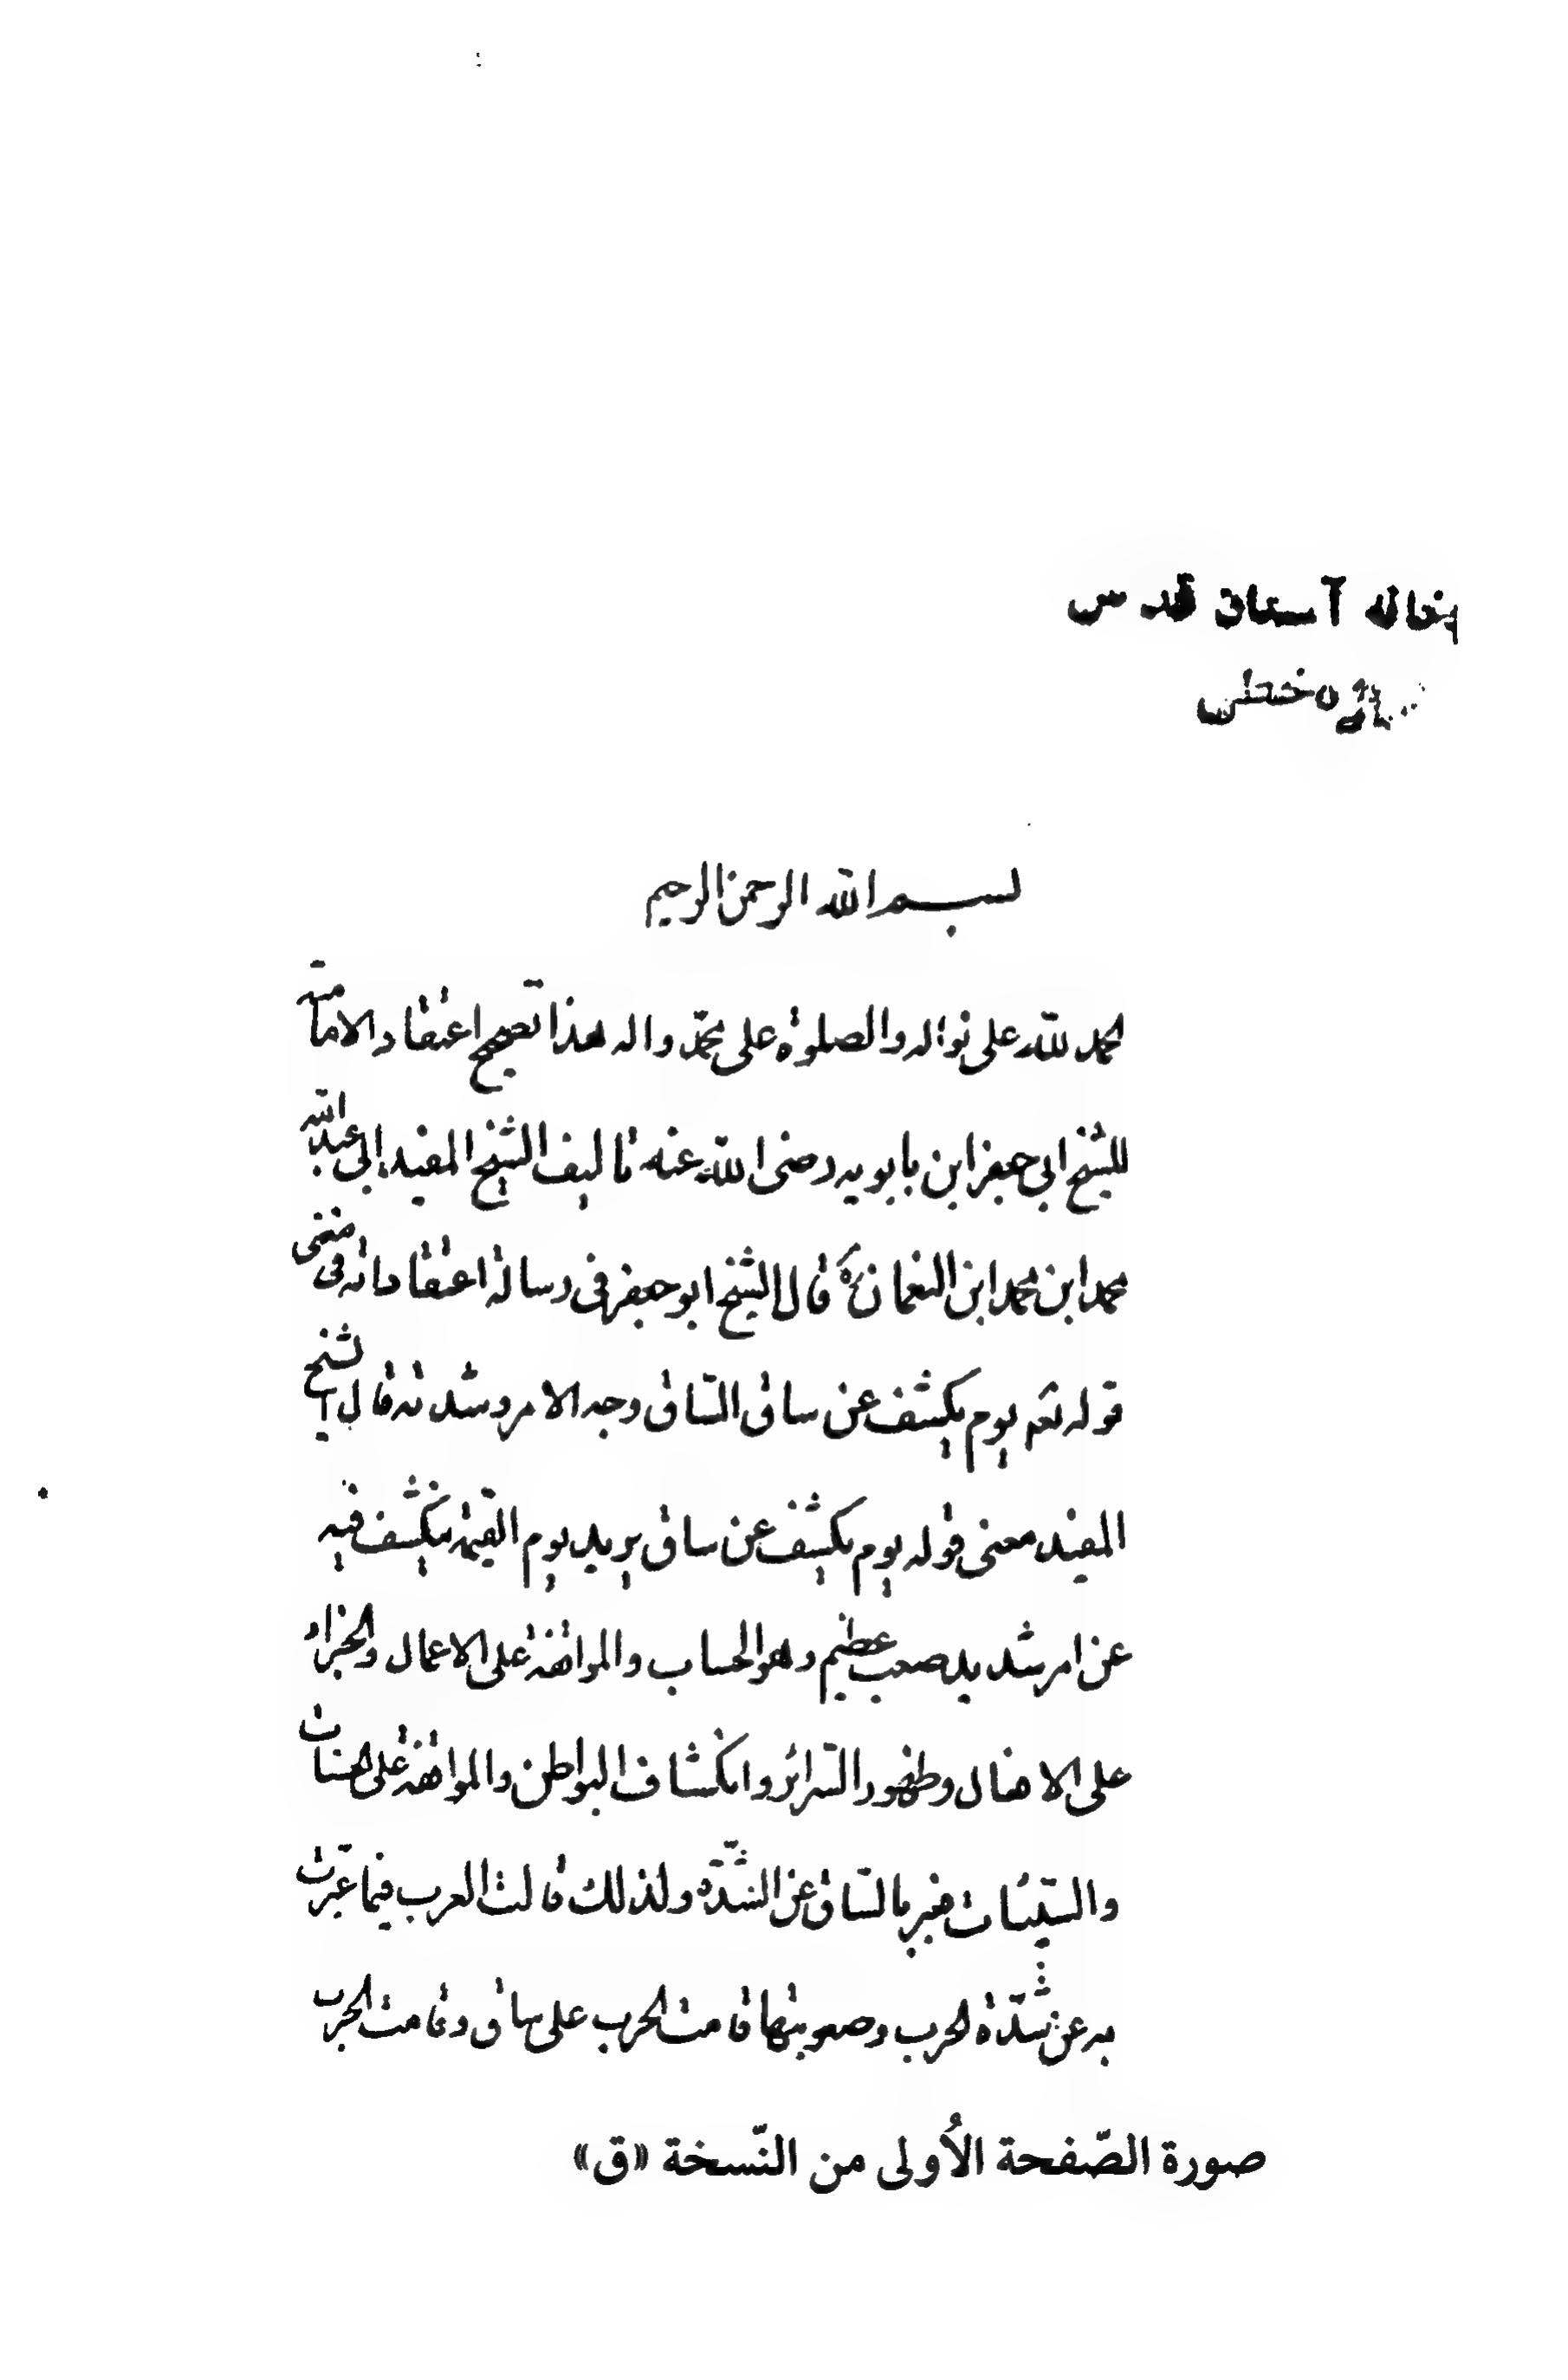 آستان قدس
بسم الله الرحمن الرحيم
لحمد لله على نواله والصلوة على محمد واله هذا تصحيح اعتقاد الامامية
للشيخ ابي جعفر ابن بابويه رضى الله عنه تاليف الشيخ المفيد ابى عبد الله
محمد ابن محمد ابن النعمان ره قال الشيخ ابو جعفر فى رسالة اعتقاداته فى معنى
قوله تعه يوم يكشف عن ساق الساق وجه الامر وشدته قال الشيخ
المفيد معنى قوله يوم يكشف عن ساق يريد يوم القيمة ينكشف فيه
عن امر شديد صعب عظيم وهو الحساب والمواقفة على الاعمال والجزاء
على الافعال وظهور السرائر وانكشاف البواطن والمواقفة على الحسنات
والسيّئات فعبر بالساق عن الشدّة ولذلك قالت العرب فيما عبّرت
به عن شدّة الحرب وصعوبتها قامت الحرب على ساق وقامت الحرب
صورة الصّفحة الأُولى من النّسخة «ق»